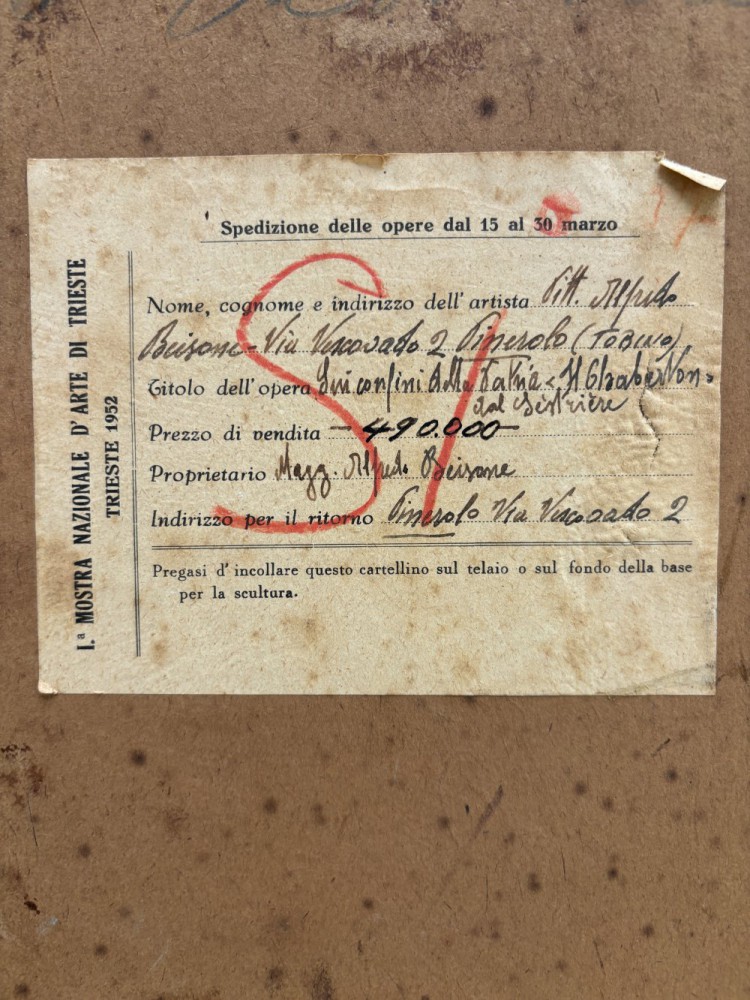 I.ª MOSTRA NAZIONALE D'ARTE DI TRIESTE
TRIESTE 1952
Spedizione delle opere dal 15 al 30 marzo
Nome, cognome e indirizzo dell'artista Pitt. Alfredo
Beisone - Via Vescovado 2 Pinerolo (TORINO)
Titolo dell'opera Sui confini della Patria - "Il Chaberton"
dal Sestriere
Prezzo di vendita - 490.000 -
Proprietario Magg. Alfredo Beisone
Indirizzo per il ritorno Pinerolo Via Vescovado 2
Pregasi d'incollare questo cartellino sul telaio o sul fondo della base
per la scultura.
SI